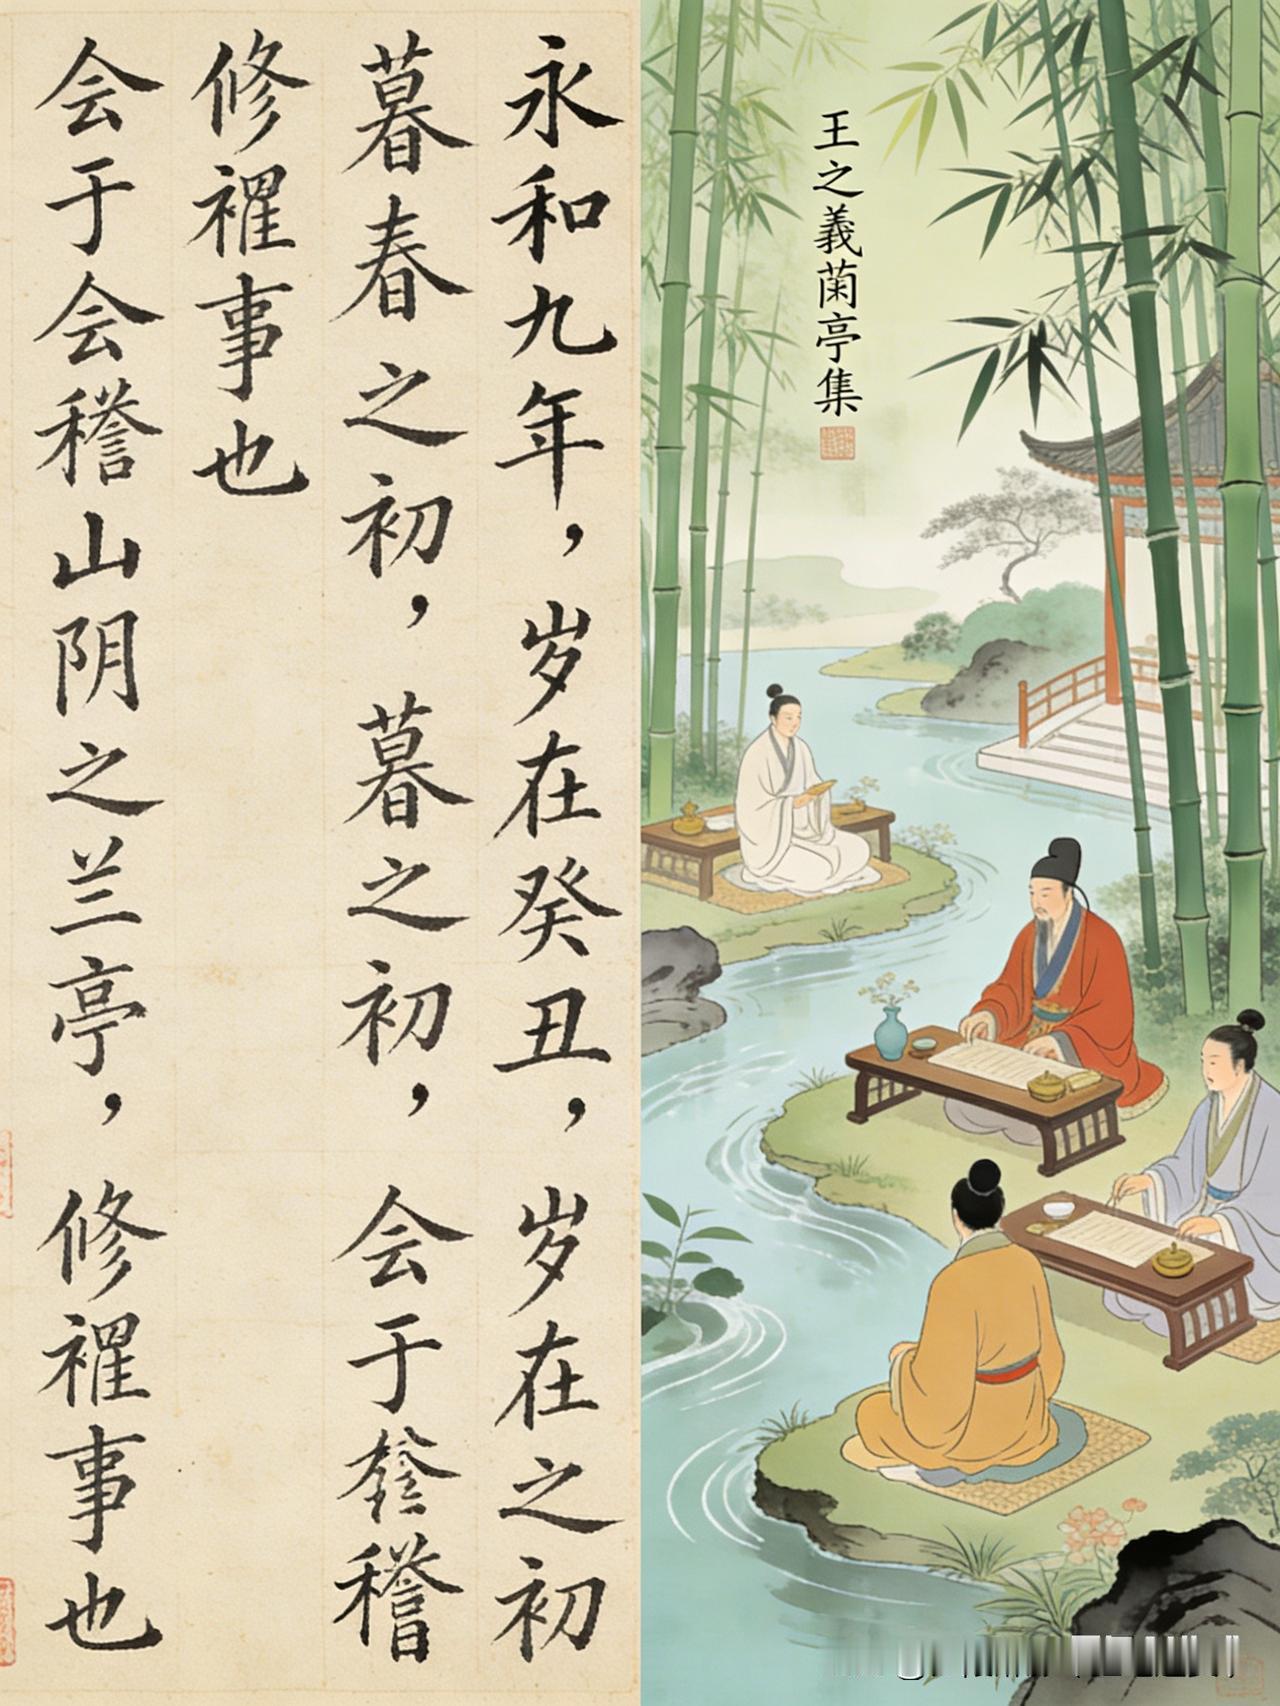 永和九年，岁在癸丑，岁在之初
暮春之初，暮之初，会于稽
修禊事也
会于会稽山阴之兰亭，修禊事也
王之義蘭亭集